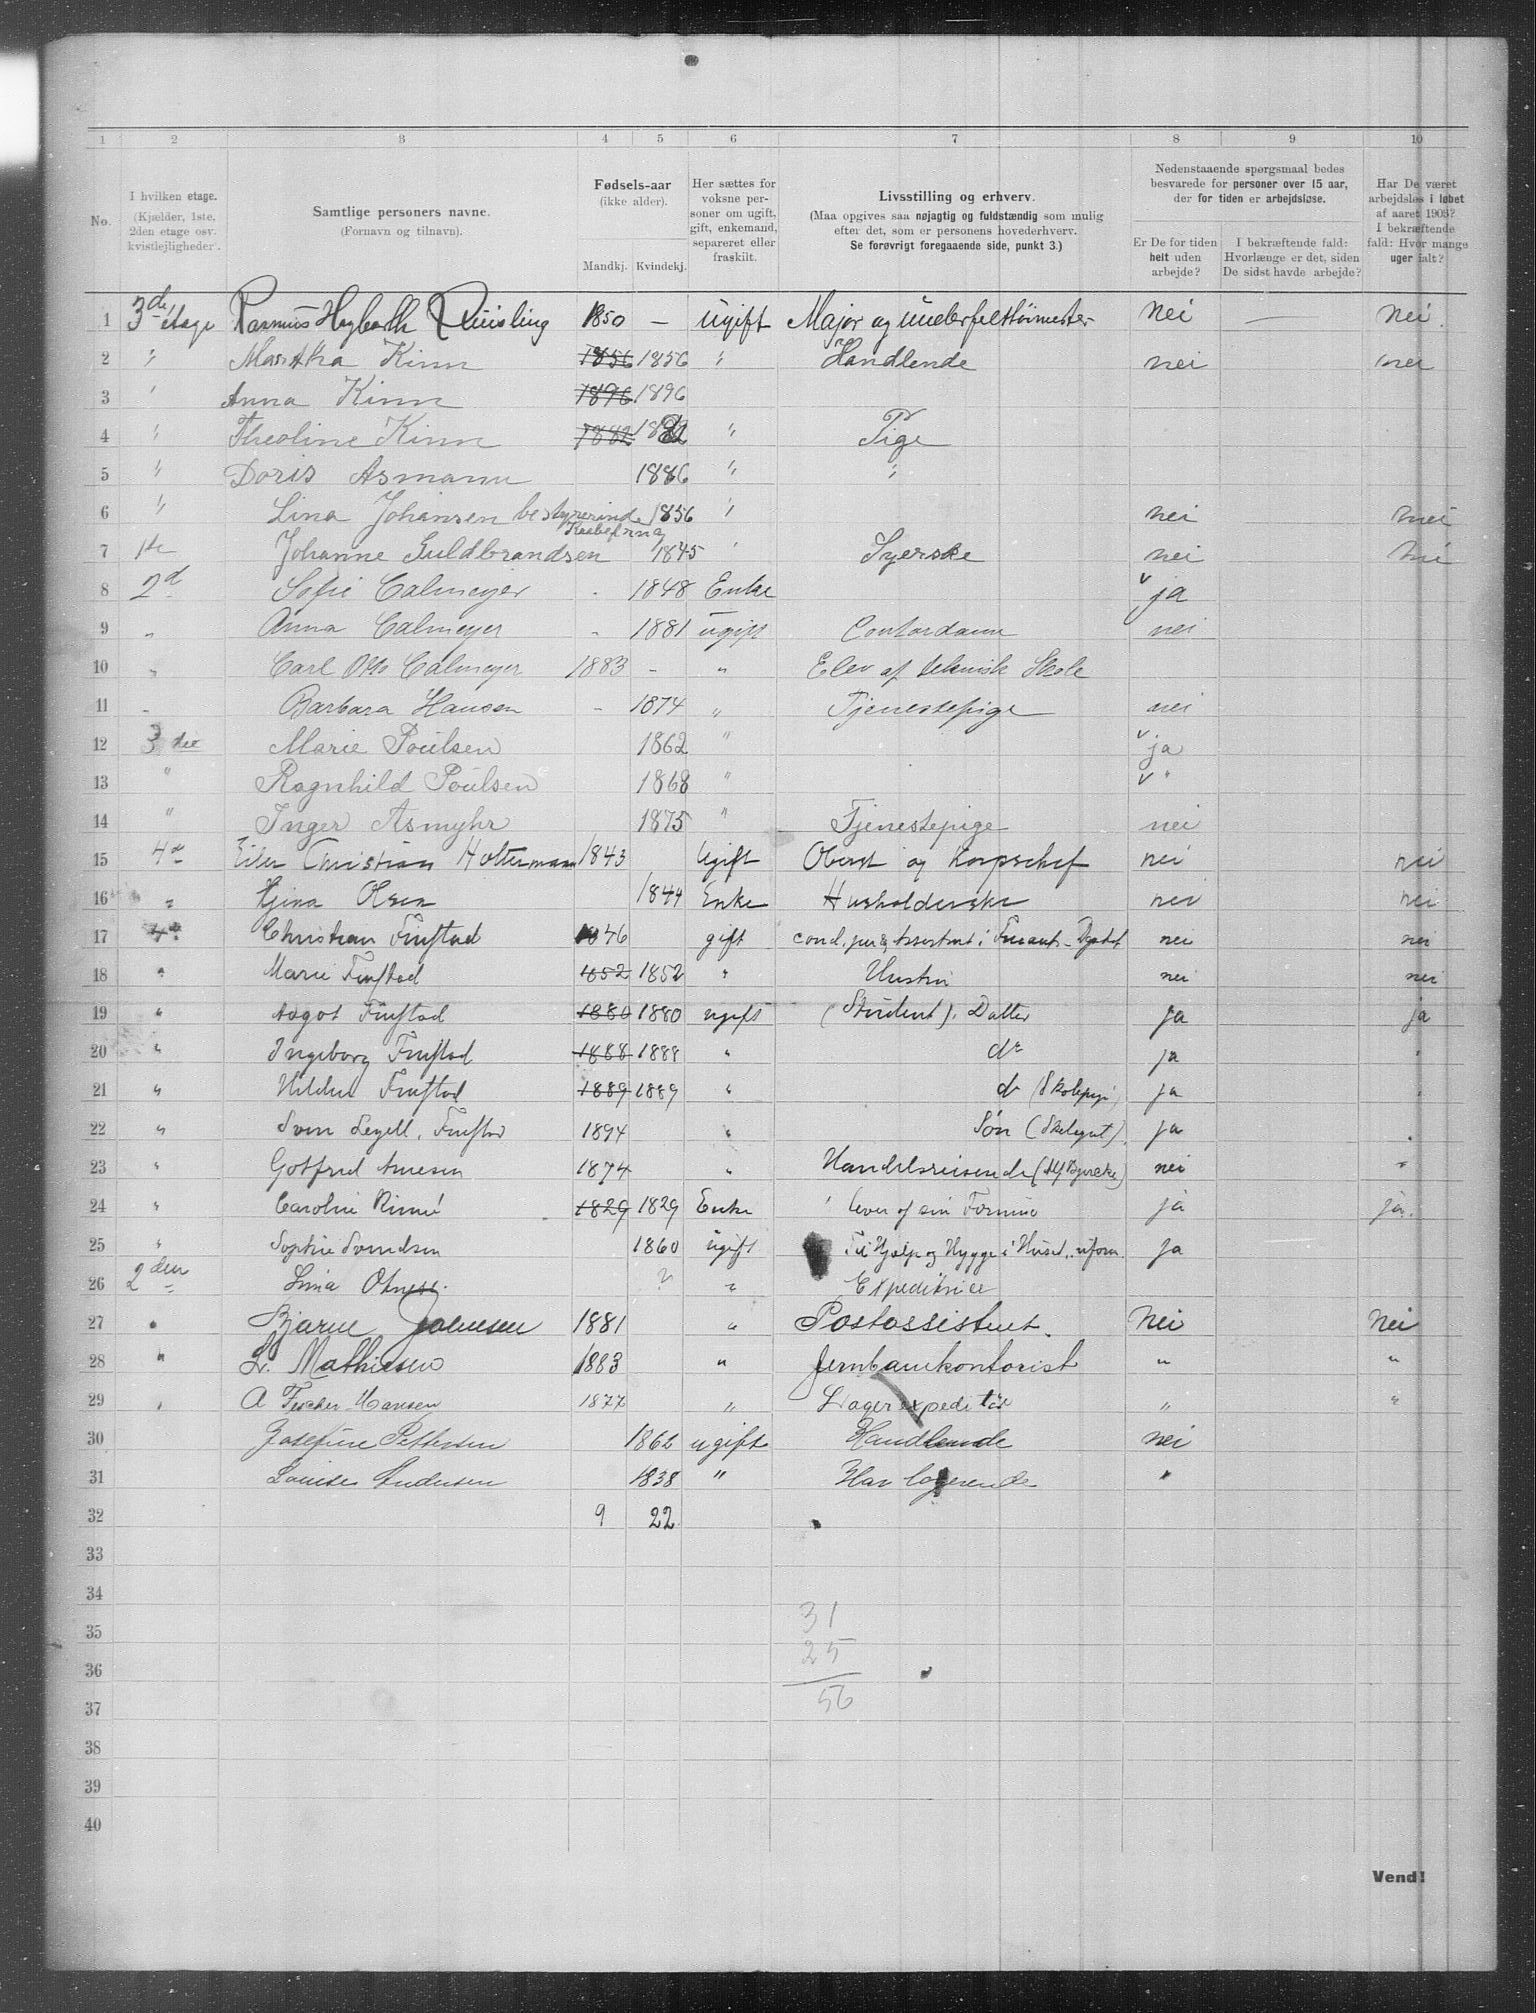 1 2 3 4 5 6 7 8 9 10
No.
I hvilken etage. (Kjælder, 1ste. 2den etage osv. kvistlejligheder.
Samtlige personers navne. (Fornavn og tilnavn).
Fødsels-aar (ikke alder). Mandkj. Kvindekj.
Her sættes for voksne personer om ugift, gift, enkemand, separeret eller fraskilt.
Livsstilling og erhverv. (Maa opgives saa nøjagtig og fuldstændig som mulig efter det, som er personens hovederhverv. Se forøvrigt foregaaende side, punkt 3.)
Nedenstaaende spørgsmaal bedes besvarede for personer over 15 aar, der for tiden er arbejdsløse.
Er De for tiden helt uden arbejde?
I bekræftende fald: Hvorlænge er det, siden De sidst havde arbejde?
Har De været arbejdsløs i løbet af aaret 1903? I bekræftende fald: Hvor mange uger ialt?
1 3de etage Rasmus Quisling 1850 — Ugift Major og underfelttøimester Nei — Nei.
2 " Martha Kinn 1856 1856 " Handlende nei nei
3 " Anna Kinn 1896 1896
4 " Theoline Kinn 1882 1882 " Pige
5 " Doris Asmann 1886 " "
6 " Lina Johansen bestyrerinde 1856 " nei nei
7 1ste Johanne Guldbrandsen 1845 " Syerske nei nei
8 2d Sofie Calmeyer - 1848 Enke ja
9 " Anna Calmeyer - 1881 ugift Contordame nei
10 " Carl Otto Calmeyer 1883 - " Elev af teknisk Skole
11 " Barbara Hansen - 1874 " Tjenestepige nei
12 3die Marie Poulsen 1862 " ja
13 " Ragnhild Poulsen 1868 " "
14 " Inger Asmyhr 1875 " Tjenestepige nei
15 4d Eiler Christian Holtermann 1843 Ugift Oberst og Korpschef nei nei
16 " Gina Olsen 1844 Enke Husholderske nei nei
17 4d Christian Finstad 1846 gift nei nei
18 " Marie Finstad 1852 1852 " Hustru nei nei
19 " Aagot Finstad 1880 1880 ugift (Student). Datter ja ja
20 " Ingeborg Finstad 1888 1888 " do ja "
21 " Hilda Finstad 1889 1889 " do (Skolepige) ja "
22 " Finstad 1894 " Søn (Skolegut) ja "
23 " Gotfred Arnesen 1874 " Handelsreisende nei "
24 " Caroline 1829 1829 Enke lever af sin Formue ja ja.
25 " Sophie Svendsen 1860 ugift Til Hjælp og Hygge i Huset ja
26 2den Lina ? " Expeditrice
27 " Bjarne Johnsen 1881 " Postassistent. Nei Nei
28 " L. Mathiesen 1883 " Jernbanekontorist " "
29 " A Fischer Hansen 1877 " Lagerexpeditør " "
30 Josefine Pettersen 1862 ugift Handlende nei
31 Louise Andersen 1838 " Har logerende "
32 9 22
33
34
35
36
37
38
39
40
31
25
56
Vend!